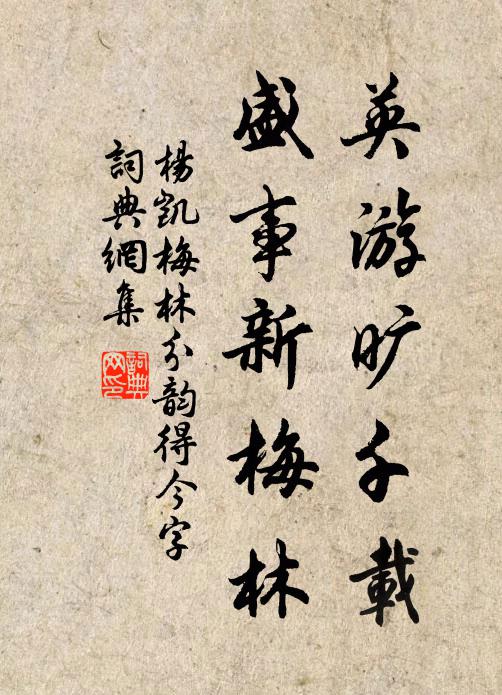 英游旷千載
盛事新梅林
楊凯梅林分韵得今字
詞典網集
詞典
网印